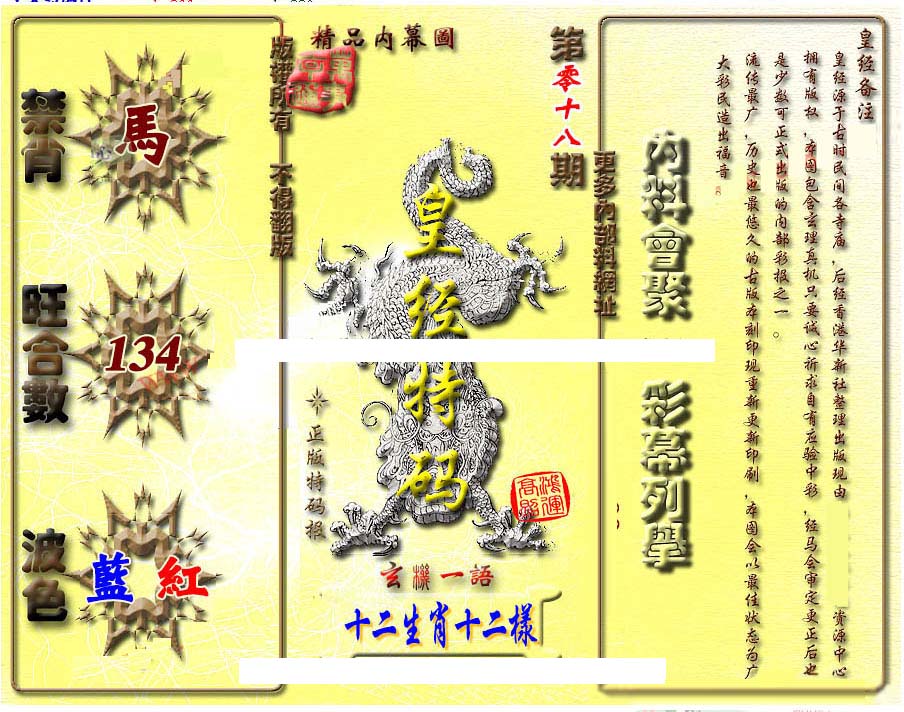 精品内幕圖
第零十八期
版權所有 不得翻版
更多內部料網址
禁肖
馬
旺合數
134
波色
藍 紅
皇经特码
正版特码报
鴻運高照
玄機一語
十二生肖十二樣
内料會聚
彩幕列舉
皇经备注
皇经源于古时民间各寺庙，后经香港华新社整理出版现由 资源中心
拥有版权，本图包含玄理真机只要诚心祈求自有应验中彩，经马会审定更正后也
是少数可正式出版的内部彩报之一。
流传最广，历史也最悠久的古版本刻印现重新更新印刷，本图会以最佳状态为广
大彩民造出福音